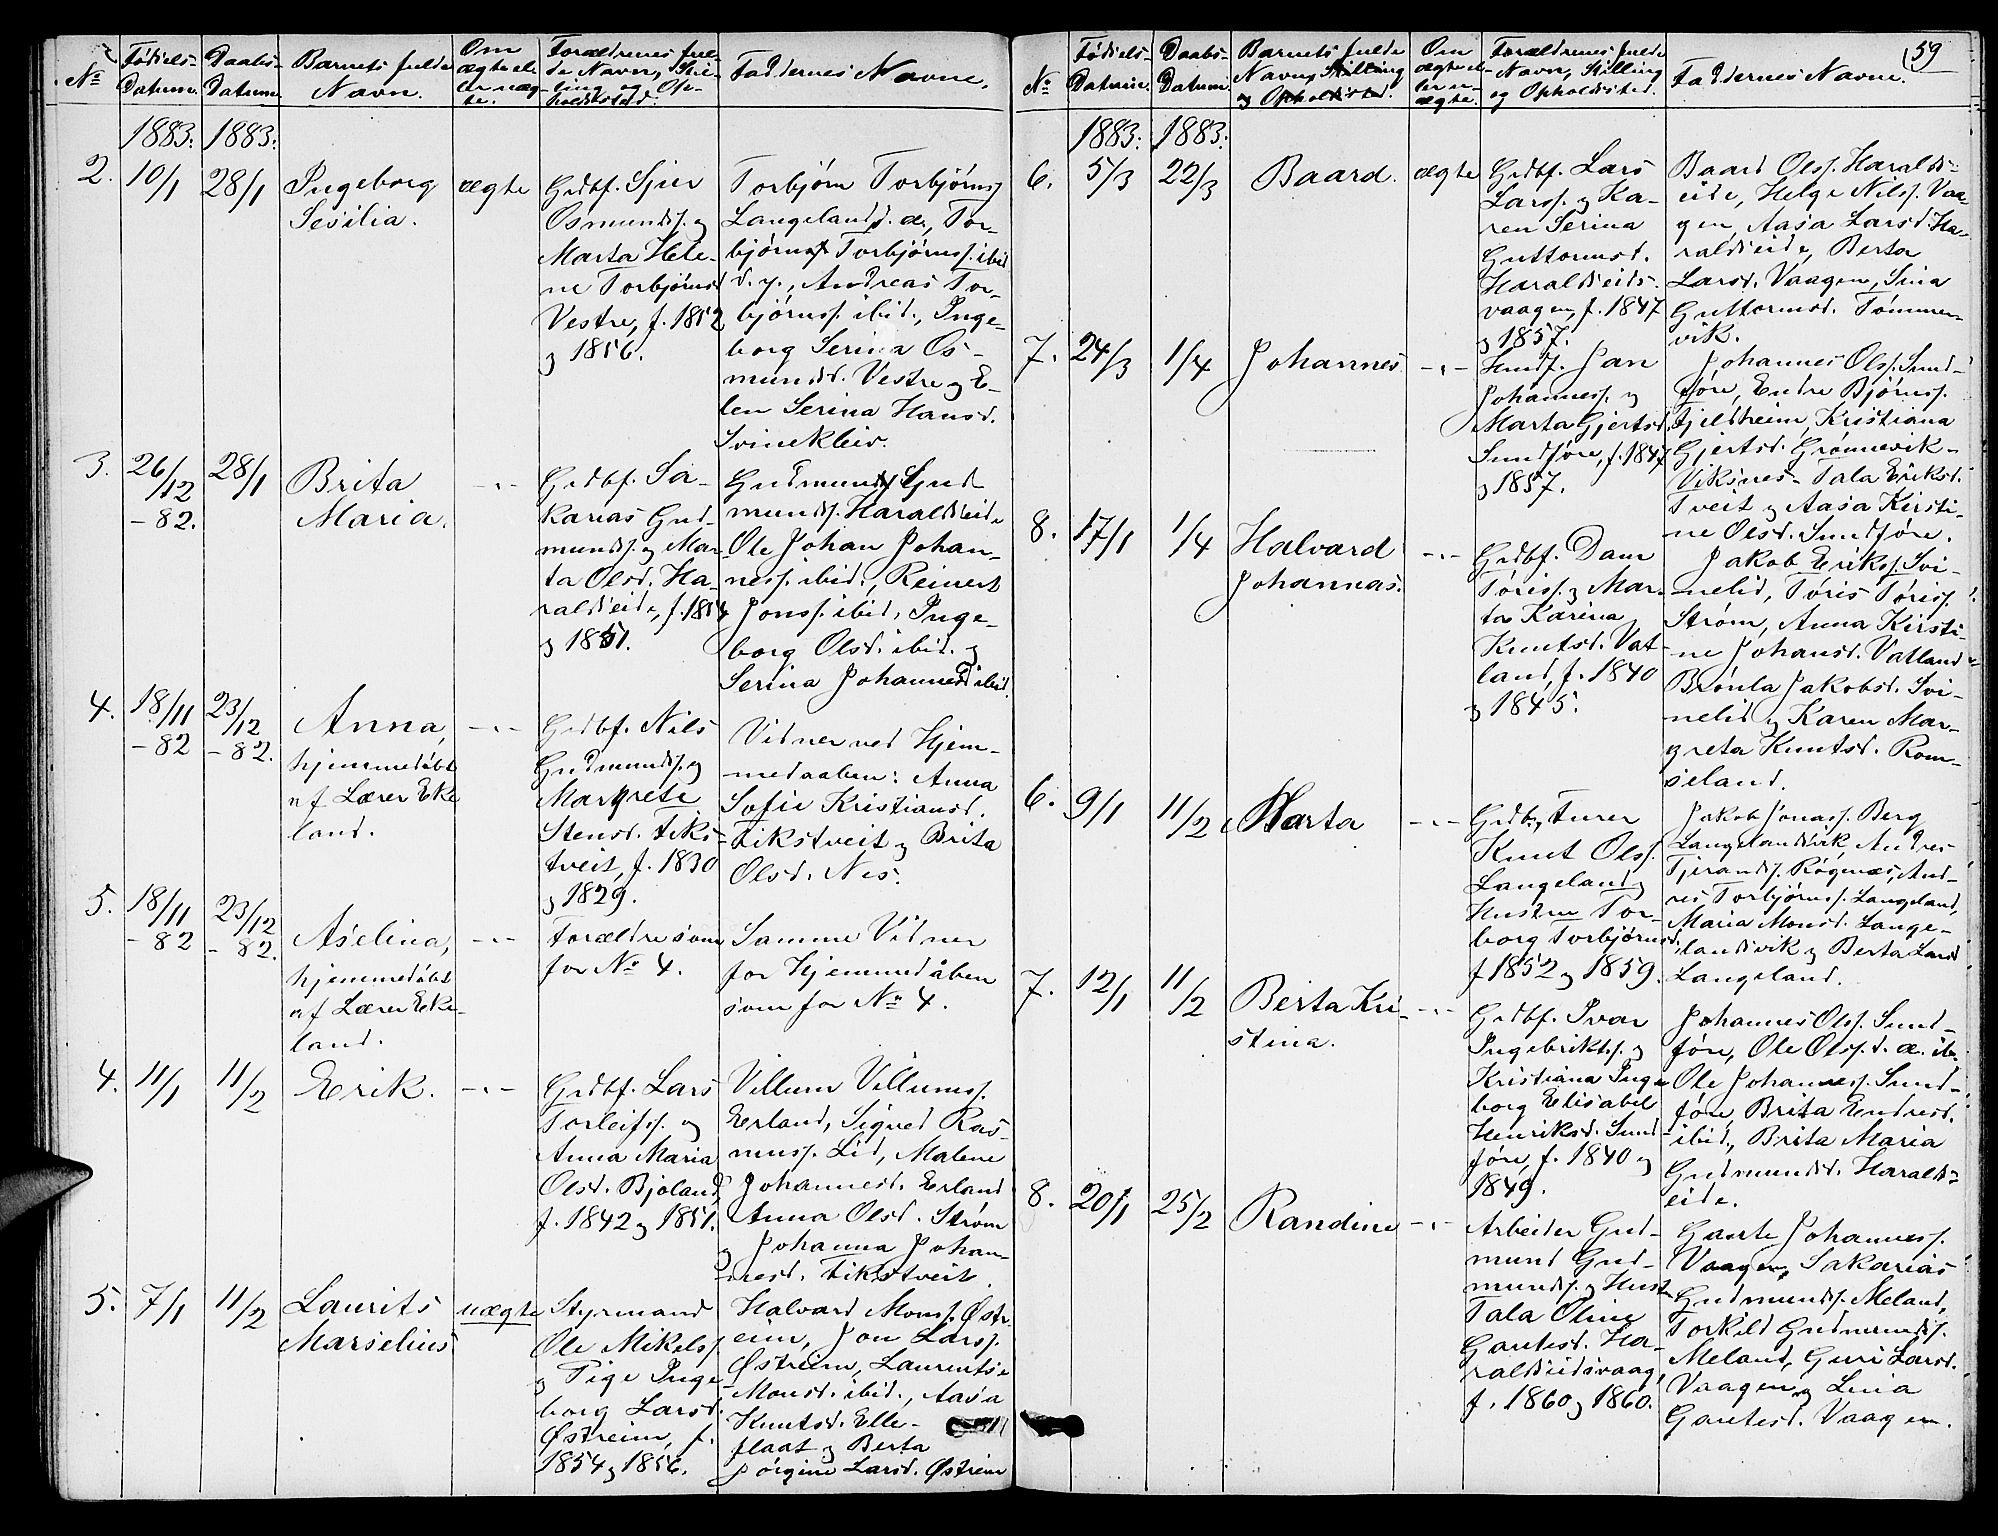 №
Fødsels-
Datum.
Daabs-
Datum.
Barnets fulde
Navn.
Om
ægte el-
ler uæg-
te.
Forældrenes ful-
de Navn, Stil-
ling og Op-
holdssted.
Faddernes Navne.
1883. 1883.
2. 10/1 28/1
Ingeborg
Sesilia.
ægte
Grdbf. Sjur
Osmunds. og
Marta Hele-
ne Torbjørnsd
Vestre, f. 1852
og 1856.
Torbjørn Torbjørns.
Langeland d. æ., Tor-
bjørn Torbjørns. ibid
d. y., Andreas Tor-
bjørns. ibid., Inge-
borg Serina Os-
mundsd. Vestre og E-
len Serina Hansd.
Svinekleiv.
3. 26/12 -82. 28/1
Brita
Maria.
-"-
Grdbf. Sa-
karias Gud-
munds. og Mar-
ta Olsd. Ha-
raldseide, f. 1854
og 1851.
Gudmund Gud-
munds. Haraldseide
Ole Johan Johan-
ness. ibid., Reinert
Jonss. ibid., Inge-
borg Olsd. ibid. og
Serina Johannesd ibid.
4. 18/11 -82 23/12 -82.
Anna,
hjemmedøbt
af Lærer Eke
land.
-"-
Grdbf. Nils
Gudmunds. og
Margrete
Stensd. Fiks-
tveit, f. 1830
og 1829.
Vidner ved Hjem-
medaaben: Anna
Sofie Kristiansd.
Fikstveit og Brita
Olsd. Nes.
5. 18/11 -82 23/12 -82.
Aselina,
hjemmedøbt
af Lærer Eke-
land.
-"-
Forældre som
for № 4.
Samme Vidner
for Hjemmedåben
som for № 4.
4. 11/1 11/2
Erik.
-"-
Grdbf. Lars
Torleifss. og
Anna Maria
Olsd. Bjoland
f. 1842 og 1851.
Villum Villums.
Erland, Sigved Ras-
muss. Lid, Malene
Johannesd. Erland
Anna Olsd. Strøm
og Johanna Johan-
nesd. Fikstveit.
5. 7/1 11/2
Laurits
Marselius
uægte
Styrmand
Ole Mikels.
og Pige Inge-
borg Larsd.
Østreim, f.
1854 og 1856.
Halvard Mons. Østr
eim, Jon Larss.
Østreim, Laurentse
Monsd. ibid., Aasa
Knutsd. Elle-
flaat og Berta
Jørgine Larsd. Østreim
59
№
Fødsels-
Datum.
Daabs-
Datum.
Barnets fulde
Navn, Stilling
og Opholdssted.
Om
ægte el-
ler u-
ægte.
Forældrenes fulde
Navn, Stilling
og Opholdssted.
Faddernes Navne.
1883. 1883.
6. 5/3 22/3
Baard.
ægte
Grdbf. Lars
Larss. og Ka-
ren Serina
Guttormsd.
Haraldseids-
vaagen, f. 1847
og 1857.
Baard Ols. Haralds-
eide, Helge Nils. Vaa-
gen, Aasa Larsd. Ha-
raldseide, Berta
Larsd. Vaagen, Sina
Guttormsd. Tømmer-
vik.
7. 24/3 1/4
Johannes
-"-
Husf. Jan
Johanness. og
Marta Gjertsd.
Sundføre, f. 1847
og 1857.
Johannes Ols. Sund-
føre, Endre Bjørns.
Fjeldheim, Kristiana
Gjertsd. Grønnevik-
Viksnes- Tala Eriksd.
Tveit og Aasa Kirsti-
ne Olsd. Sundføre.
8. 17/1 1/4
Halvard
Johannas.
-"-
Grdbf. Dam
Tøriss. og Mar-
ta Karina
Knutsd. Vat-
land, f. 1840
og 1845.
Jakob Eriks. Svi-
nelid, Tøris Tøriss.
Strøm, Anna Kirsti-
ne Johansd. Vatland
Brønla Jakobsd. Svi-
nelid og Karen Mar-
greta Knutsd. Rom-
seland.
6. 9/1 11/2
Marta
-"-
Grdbr. Furer
Knut Ols.
Langeland og
Hustru Tor-
borg Torbjørnsd.
f. 1852 og 1859.
Jakob Jonass. Berg
Langelandsvik, Andres
Tjerands. Røgenes, And-
res Torbjørns. Langeland,
Maria Monsd. Lange-
landsvik og Berta Larsd
Langeland.
7. 12/1 11/2
Berta Kri-
stina.
-"-
Grdbf. Ivar
Ingebrikts. og
Kristiana Inge
borg Elisabet
Henriksd. Sund
føre, f. 1840 og
1849.
Johannes Ols. Sund-
føre, Ole Ols. d. æ. ib.
Ole Johanness. Sund-
føre, Brita Endresd.
ibid., Brita Maria
Gudmundsd. Haralds-
eide.
8. 20/1 25/2
Randine
-"-
Arbeider Gud-
mund Gud-
munds. og Hustr
Tala Oline
Gautesd. Ha-
raldseidsvaag,
f. 1860 og 1860.
Gaute Johanness.
Vaagen, Sakarias
Gudmunds. Meland,
Torkild Gudmunds.
Meland, Guri Larsd.
Vaagen og Lina
Gautesd. Vaagen.